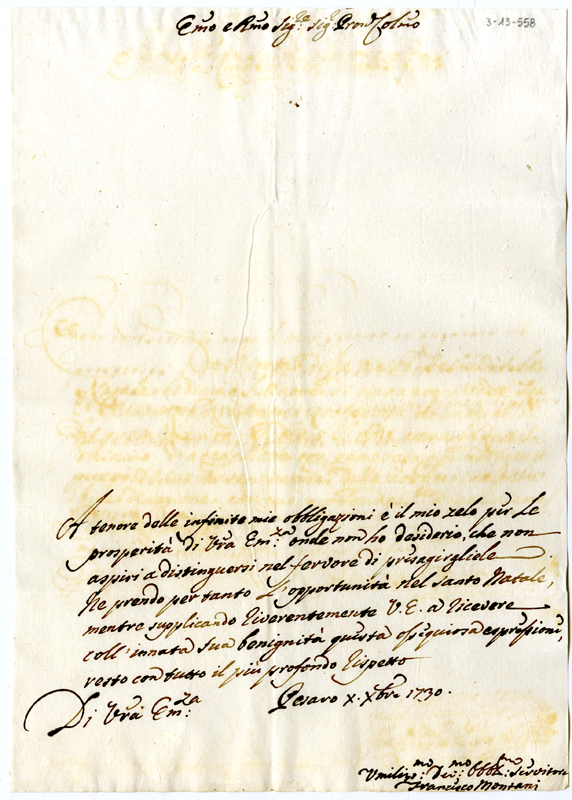 Emo e Rmo Sig.re Sig.re Pron Colmo
3-13-558
A tenore delle infinite mie obbligazioni è il mio zelo per le
prosperità di Vra Em.za onde non ho desiderio, che non
aspiri a distinguersi nel fervore di presagirgliele.
Ne prendo per tanto l'opportunità nel Santo Natale,
mentre supplicando riverentemente V. E. a ricevere
coll'innata sua benignità queste ossequiose espressioni,
resto con tutto il più profondo rispetto
Di Vra Em.za
Pesaro X. Xbre 1730.
Umiliss.mo Dev.mo Obb.mo Servitore
Francesco Montani